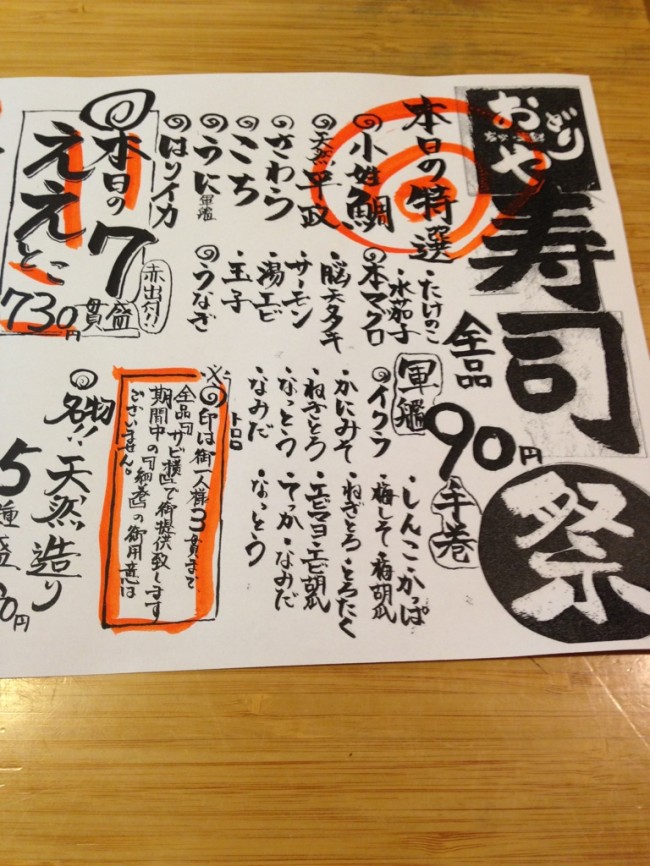 おどりや
寿司祭
全品
90円
本日の特選
◎小姓鯛
◎天然平政
◎さわら
◎こち
◎うに軍艦
◎はリイカ
・たけのこ
・水茄子
◎本マグロ
・脳天タタキ
・サーモン
・湯エビ
・玉子
◎うなぎ
軍艦
◎イクラ
・かにみそ
・ねぎとろ
・なっとう
・なみだ
手巻
・しんこ・かっぱ
・梅しそ・梅胡瓜
・ねぎとろ・とろたく
・エビマヨ・エビ胡瓜
・てっか・なみだ
・なっとう
※◎印は御一人様3貫まで
全品『サビ横』で御提供致します
期間中の『細巻』の御用意は
ございません。
◎本日の7
ええとこ
貫盛
赤出付!!
730円
◎名物!!天然造り
5種盛
0円